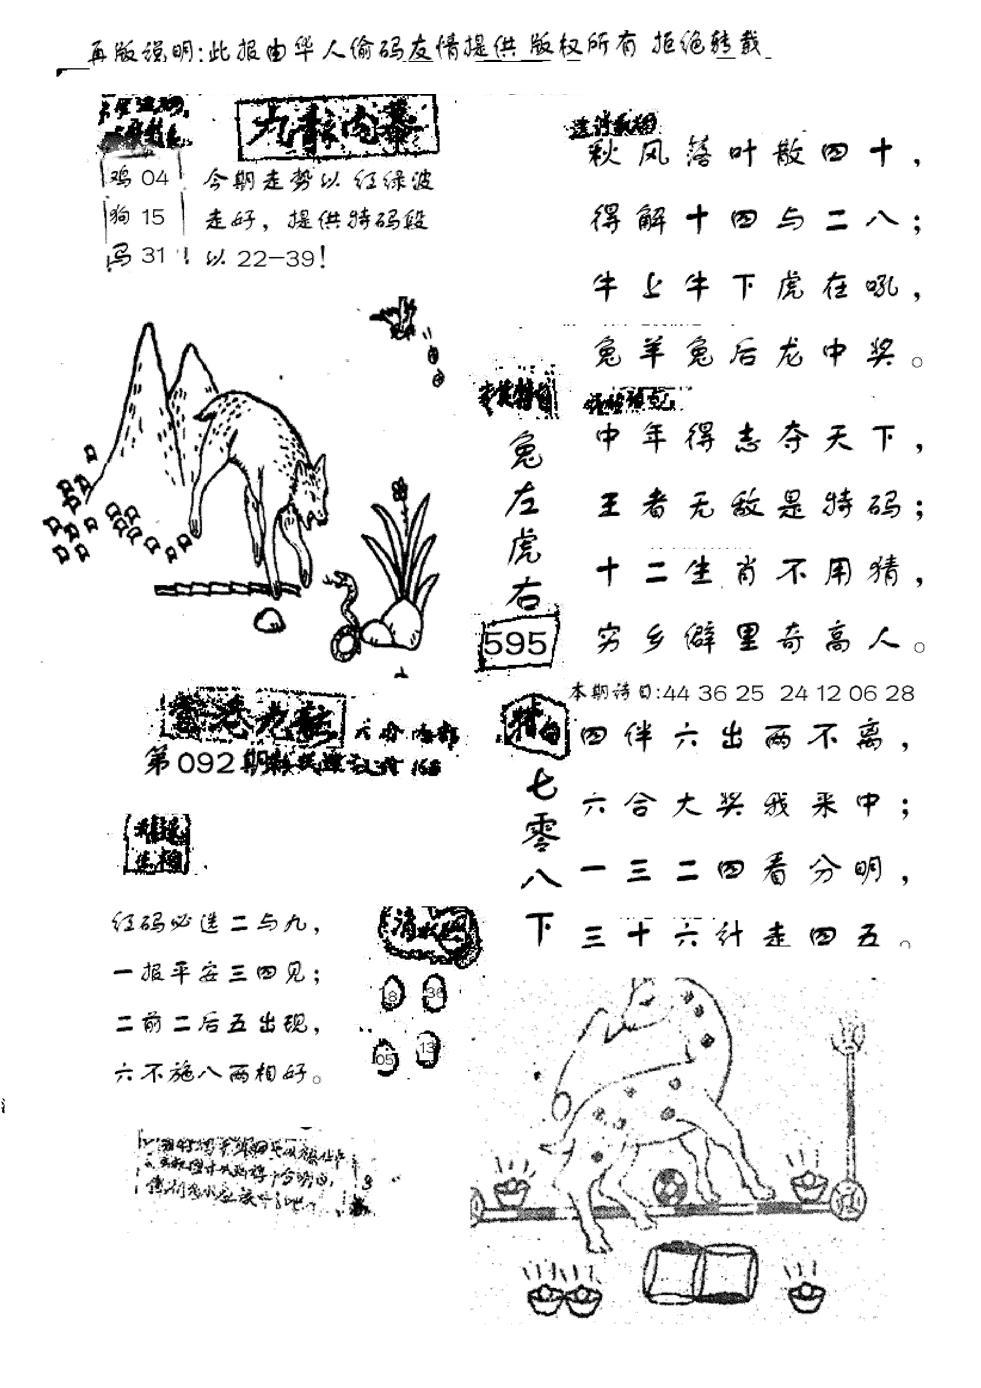 再版说明:此报由华人偷码友情提供 版权所有 拒绝转载
九龍内幕
鸡 04
狗 15
马 31
今期走势以红绿波
走好，提供特码段
以 22-39!
秋风落叶散四十，
得解十四与二八；
牛上牛下虎在吼，
兔羊兔后龙中奖。
兔左虎右
595
中年得志夺天下，
王者无敌是特码；
十二生肖不用猜，
穷乡僻里奇高人。
本期诗日:44 36 25 24 12 06 28
香港九龍
第092期
特白
七零八下
四伴六出两不离，
六合大奖我来中；
一三二四看分明，
三十六计走四五。
精选生相
红码必选二与九，
一报平安三四见；
二前二后五出现，
六不施八两相好。
18 36
05 13